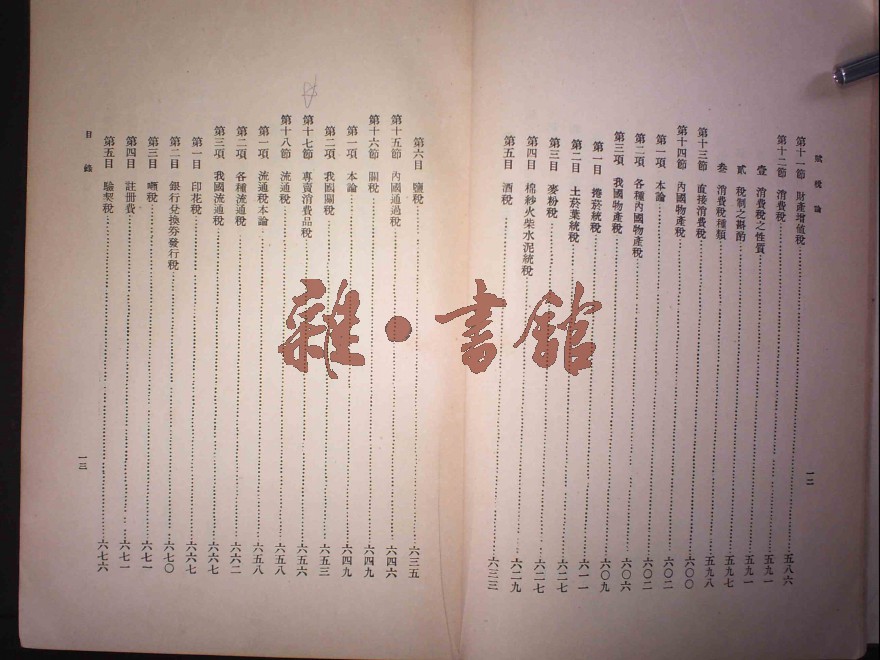 賦稅論
第十一節 財產增值稅 五八六
第十二節 消費稅 五九一
壹 消費稅之性質 五九一
貳 稅制之斟酌 五九七
叁 消費稅種類 五九八
第十三節 直接消費稅 六〇〇
第十四節 內國物產稅 六〇二
第一項 本論 六〇二
第二項 各種內國物產稅 六〇六
第三項 我國物產稅 六〇九
第一目 捲菸統稅 六一一
第二目 土菸葉統稅 六二七
第三目 麥粉稅 六二七
第四目 棉紗火柴水泥統稅 六二九
第五目 酒稅 六三三
一二
第六目 鹽稅 六三五
第十五節 內國通過稅 六四六
第十六節 關稅 六四九
第一項 本論 六四九
第二項 我國關稅 六五三
第十七節 專賣消費品稅 六五六
第十八節 流通稅 六五八
第一項 流通稅本論 六五八
第二項 各種流通稅 六六二
第三項 我國流通稅 六六七
第一目 印花稅 六六七
第二目 銀行兌換券發行稅 六七〇
第三目 噸稅 六七一
第四目 註册費 六七一
第五目 驗契稅 六七六
目錄
一三
雜·書館